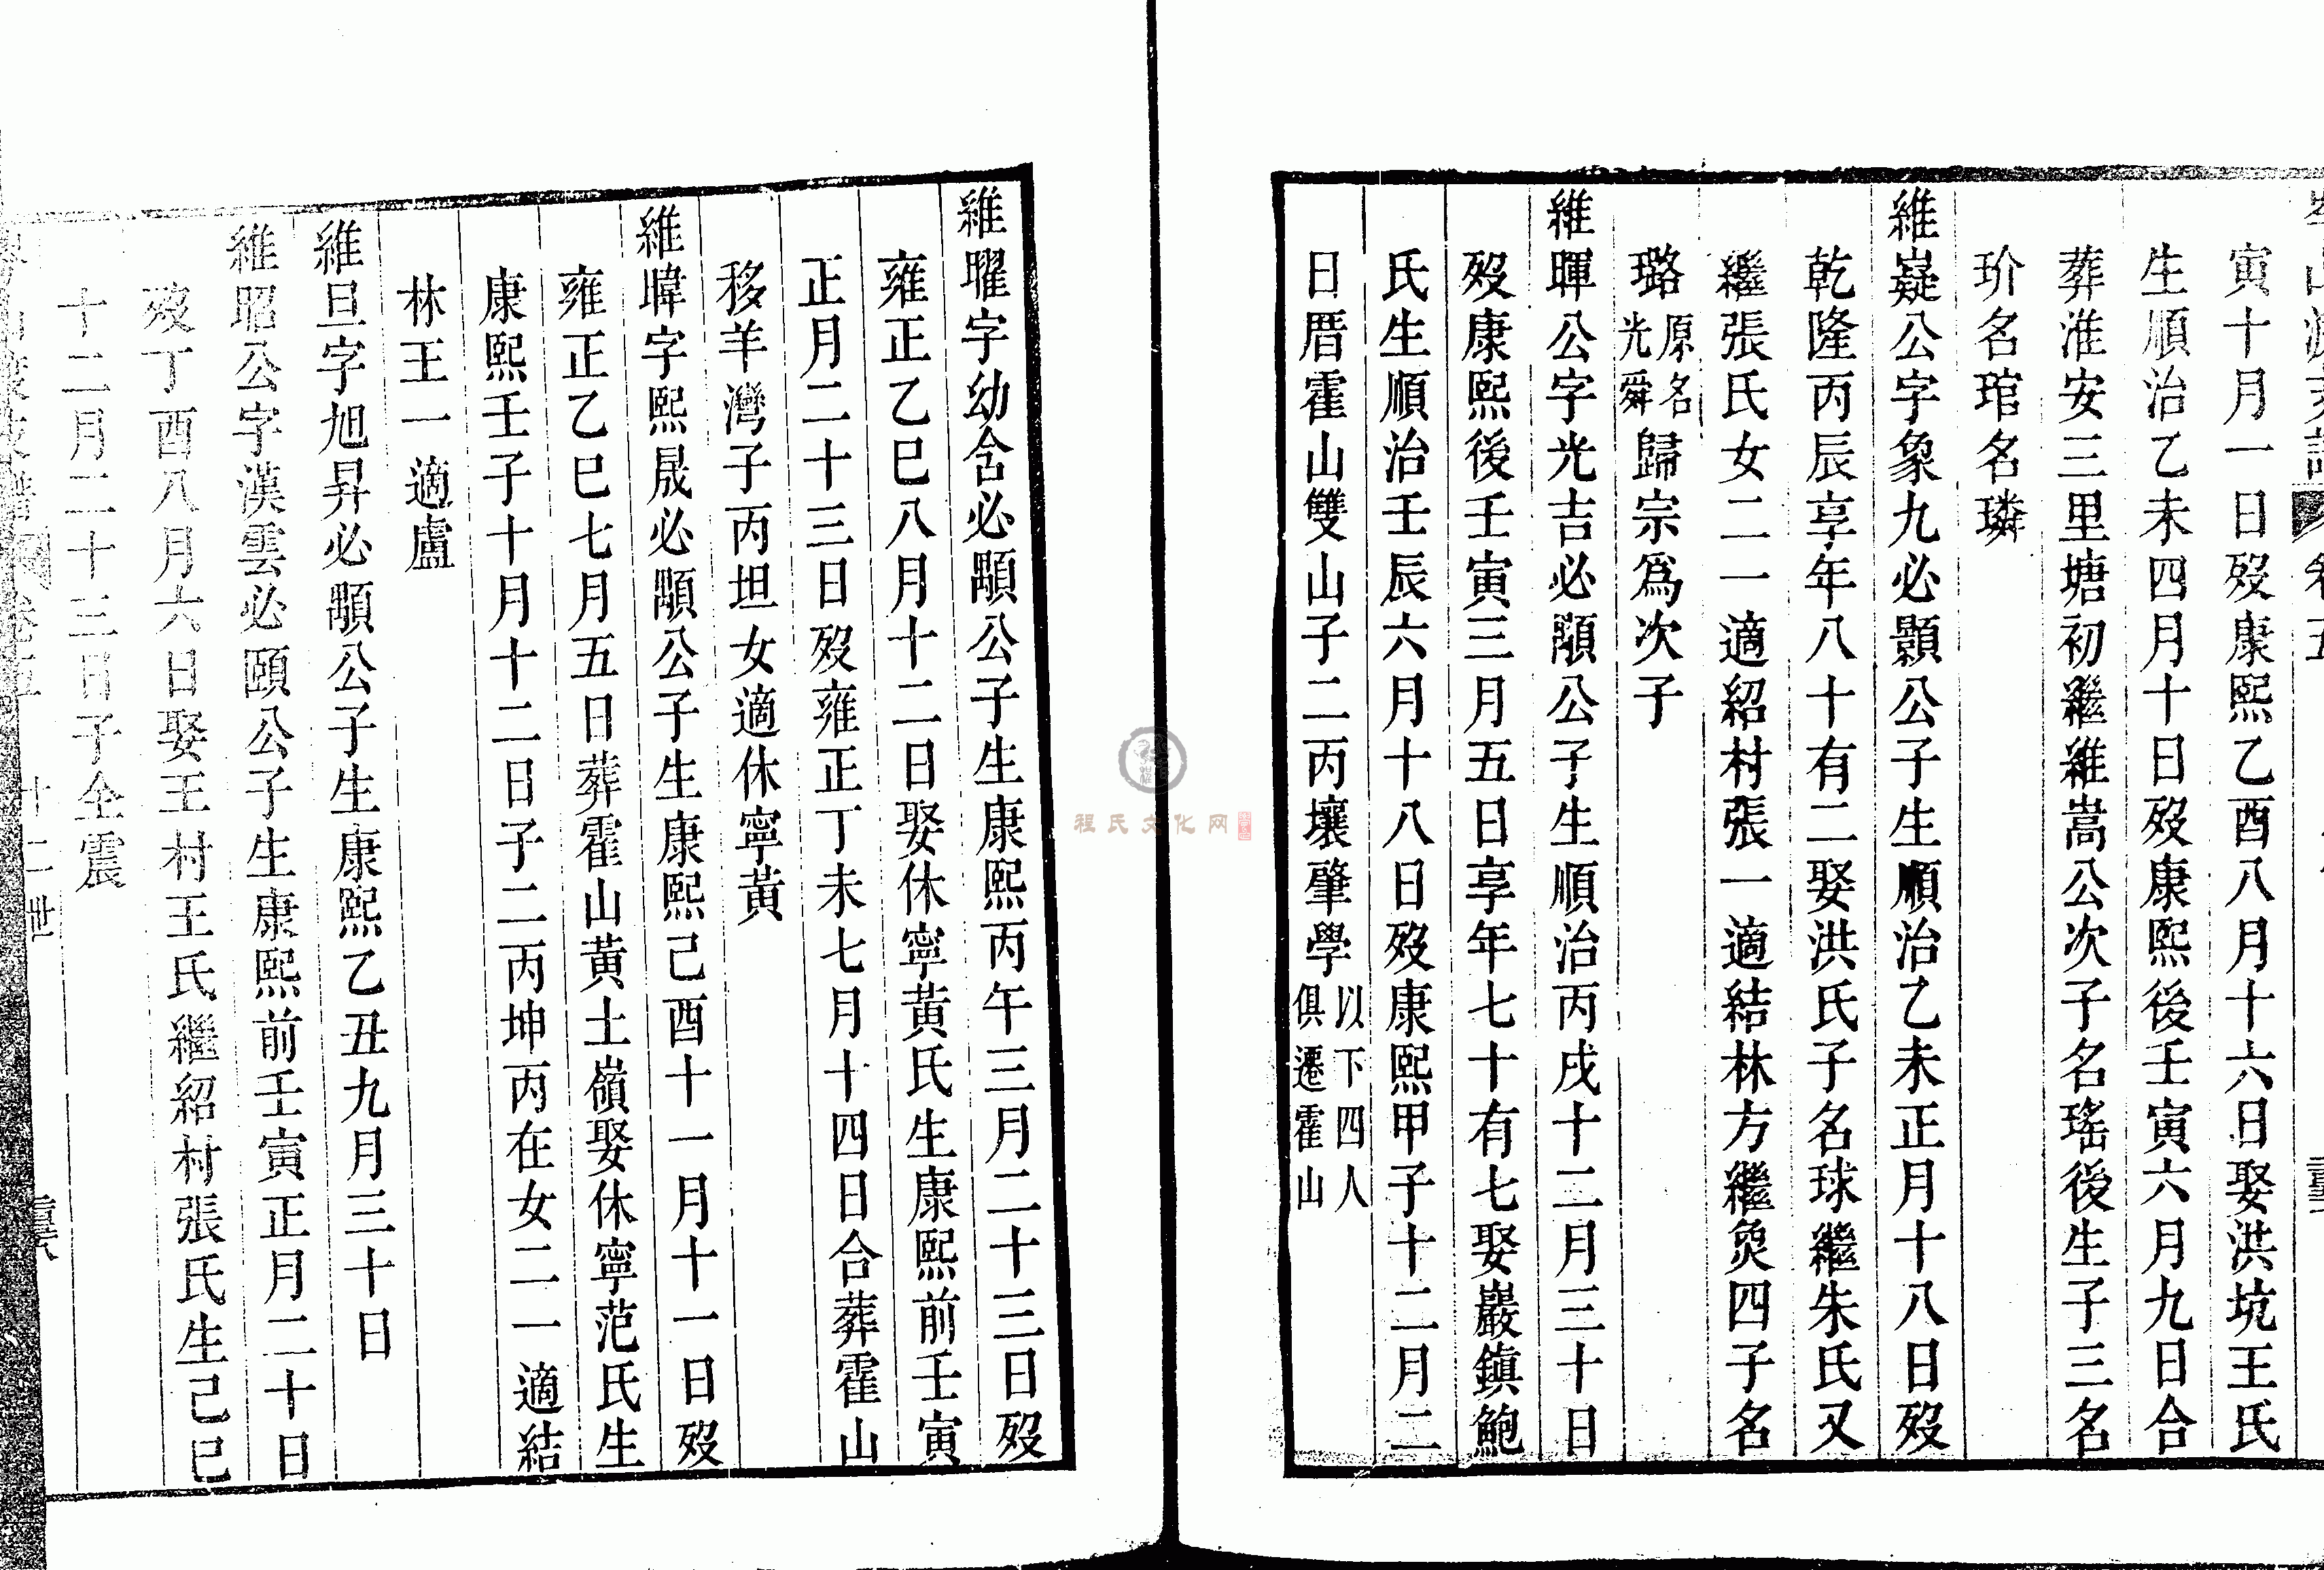 寅十月一日歿康熙乙酉八月十六日娶洪坑王氏
生順治乙未四月十日歿康熙後壬寅六月九日合
葬淮安三里塘初繼維嵩公次子名瑤後生子三名
玠名琯名璘
維嶷公字象九必顯公子生順治乙未正月十八日歿
乾隆丙辰享年八十有二娶洪氏子名球繼朱氏又
繼張氏女二一適紹村張一適結林方繼炱四子名
璐原名光舜歸宗爲次子
維暉公字光吉必顒公子生順治丙戌十二月三十日
歿康熙後壬寅三月五日享年七十有七娶巖鎮鮑
氏生順治壬辰六月十八日歿康熙甲子十二月二
日厝霍山雙山子二丙壤肇學以下四人俱遷霍山
維曜字幼含必顒公子生康熙丙午三月二十三日歿
雍正乙巳八月十二日娶休寧黃氏生康熙前壬寅
正月二十三日歿雍正丁未七月十四日合葬霍山
移羊灣子丙坦女適休寧黃
維暐字熙晟必顒公子生康熙己酉十一月十一日歿
雍正乙巳七月五日葬霍山黃土嶺娶休寧范氏生
康熙壬子十月十二日子二丙坤丙在女二一適結
林王一適盧
維旦字旭昇必顒公子生康熙乙丑九月三十日
維昭公字漢雲必頤公子生康熙前壬寅正月二十日
歿丁酉八月六日娶王村王氏繼紹村張氏生己巳
十二月二十三日子全震
十二世
程氏文化网